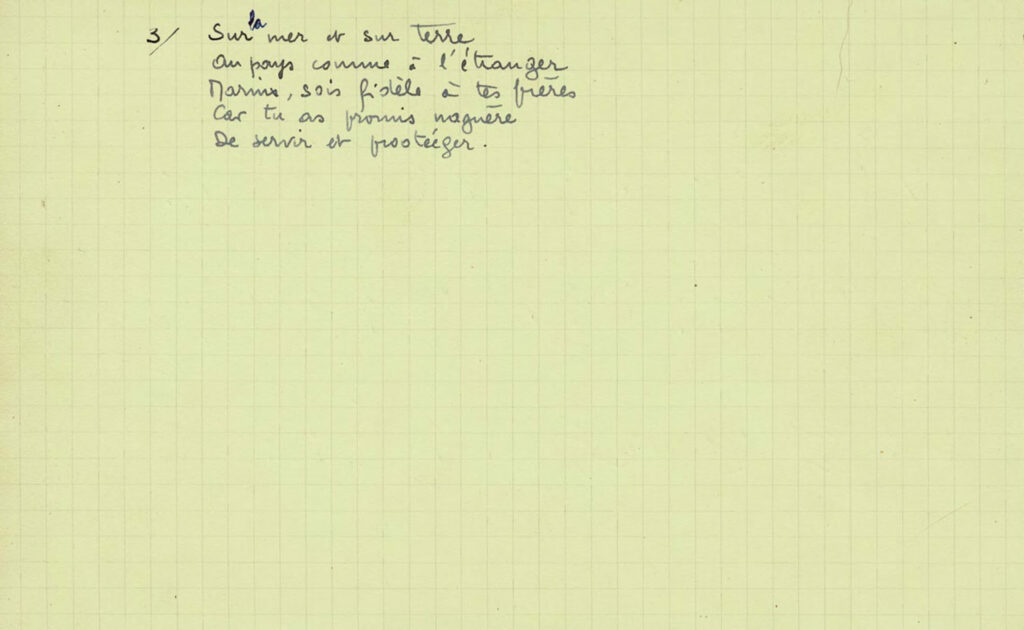 3/ Sur la mer et sur terre
Au pays comme à l'étranger
Marin, sois fidèle à tes frères
Car tu as promis naguère
De servir et protéger.